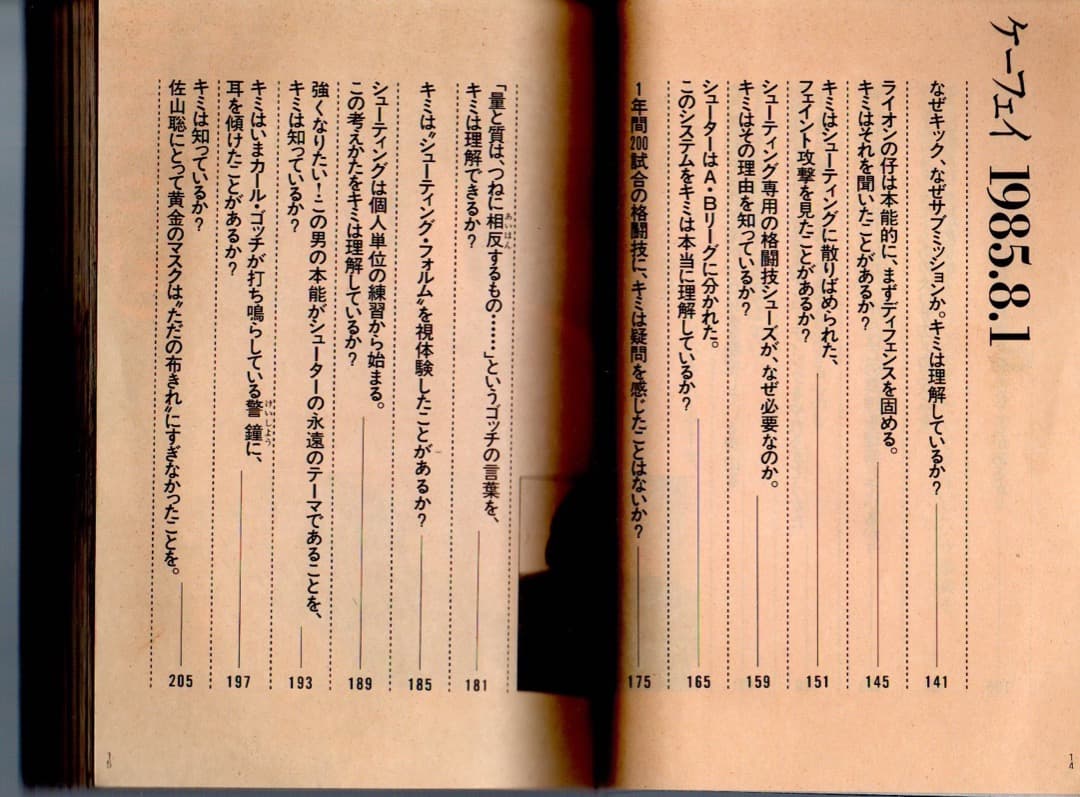 ケーフェイ 1985.8.1
なぜキック、なぜサブミッションか。キミは理解しているか？ 141
ライオンの仔は本能的に、まずディフェンスを固める。
キミはそれを聞いたことがあるか？ 145
キミはシューティングに散りばめられた、
フェイント攻撃を見たことがあるか？ 151
シューティング専用の格闘技シューズが、なぜ必要なのか。
キミはその理由を知っているか？ 159
シューターはA・Bリーグに分かれた。
このシステムをキミは本当に理解しているか？ 165
1年間200試合の格闘技に、キミは疑問を感じたことはないか？ 175
14
「量と質は、つねに相反するもの……」というゴッチの言葉を、
あいはん
キミは理解できるか？ 181
キミは〝シューティング・フォルム〟を視体験したことがあるか？ 185
シューティングは個人単位の練習から始まる。
この考えかたをキミは理解しているか？ 189
強くなりたい！この男の本能がシューターの永遠のテーマであることを、
キミは知っているか？ 193
キミはいまカール・ゴッチが打ち鳴らしている警鐘に、
けいしょう
耳を傾けたことがあるか？ 197
キミは知っているか？
佐山聡にとって黄金のマスクは〝ただの布きれ〟にすぎなかったことを。 205
15